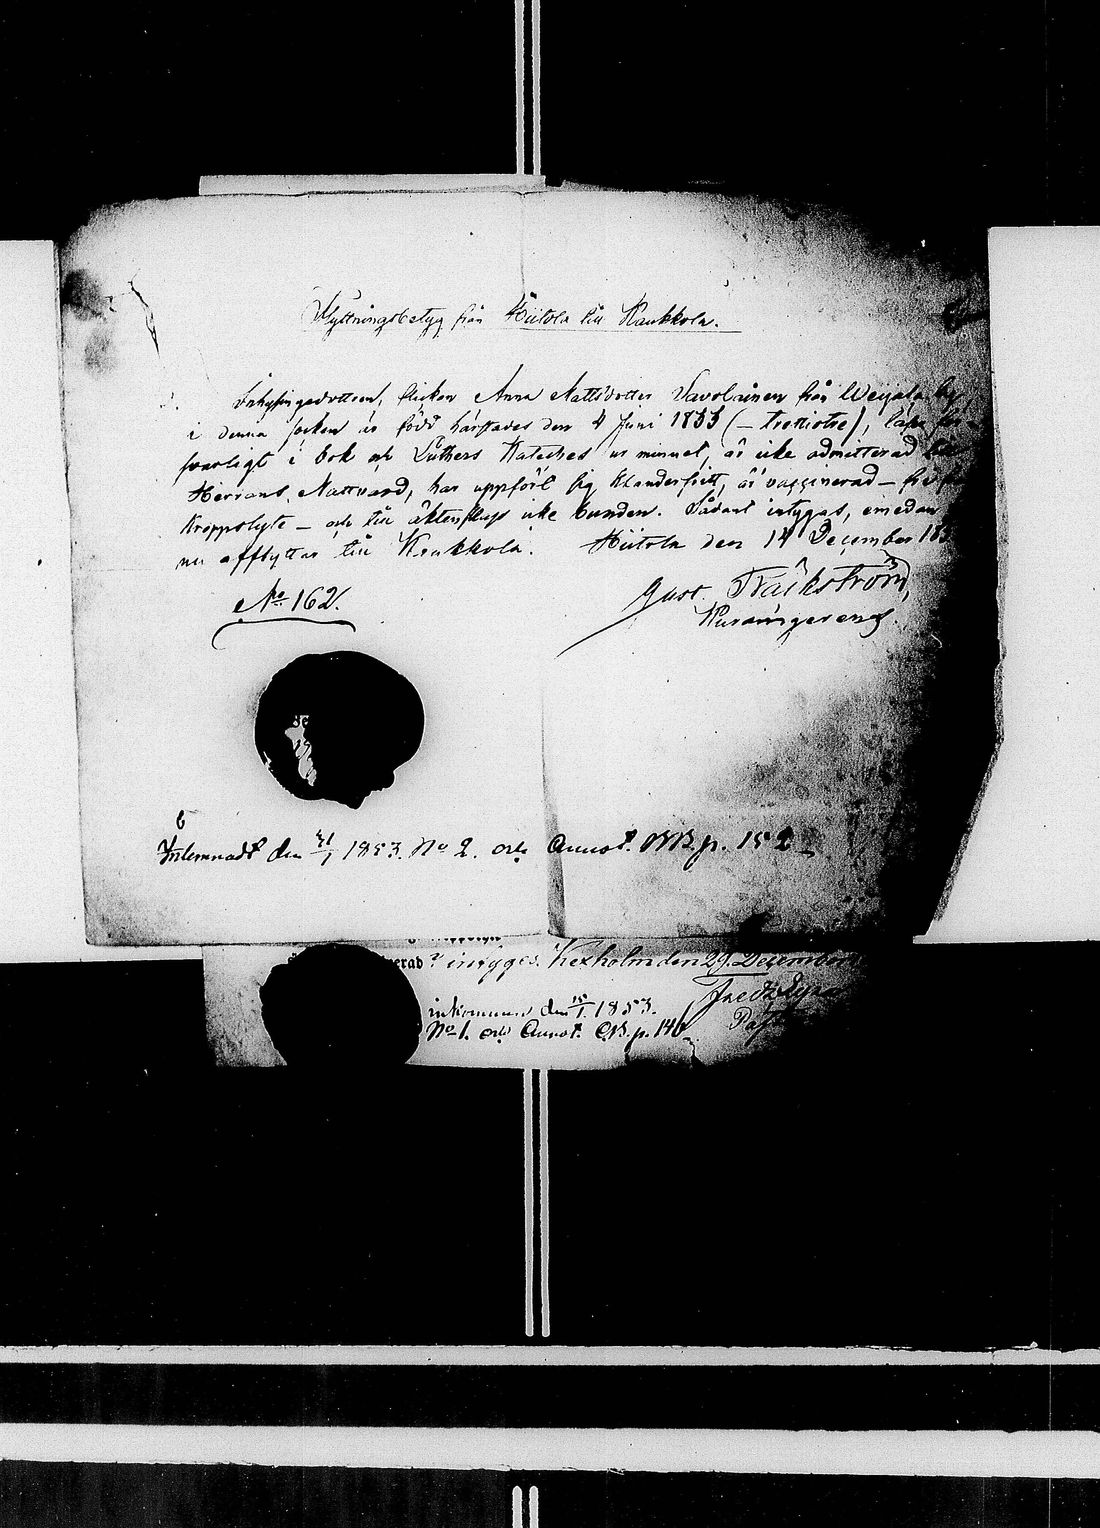 Flyttningsbetyg från Hiitola till Kaukkola.
Inhysingsdottren, flickan Anna Mattsdotter Savolainen från Weijala by
i denna socken är född härstädes den 4 Juni 1833 (– trettiotre), läser för-
svarligt i bok och Luthers Kateches ur minnet, är icke admitterad till
Herrans Nattvard, har uppfört sig klanderfritt, är vaccinerad – fri från
kroppslyte – och till äktenskap icke bunden. Sådant intygas, emedan
nu afflyttar till Kaukkola. Hiitola den 14 December 185
Gust. Fräikström,
No 162.
Inlemnadt den 31/1 1853. No 2. och Annot. p. 152
verad intygas. Kexholm den 29 December
inkommen den 15/1 1853.
No 1. och Annot. p. 140